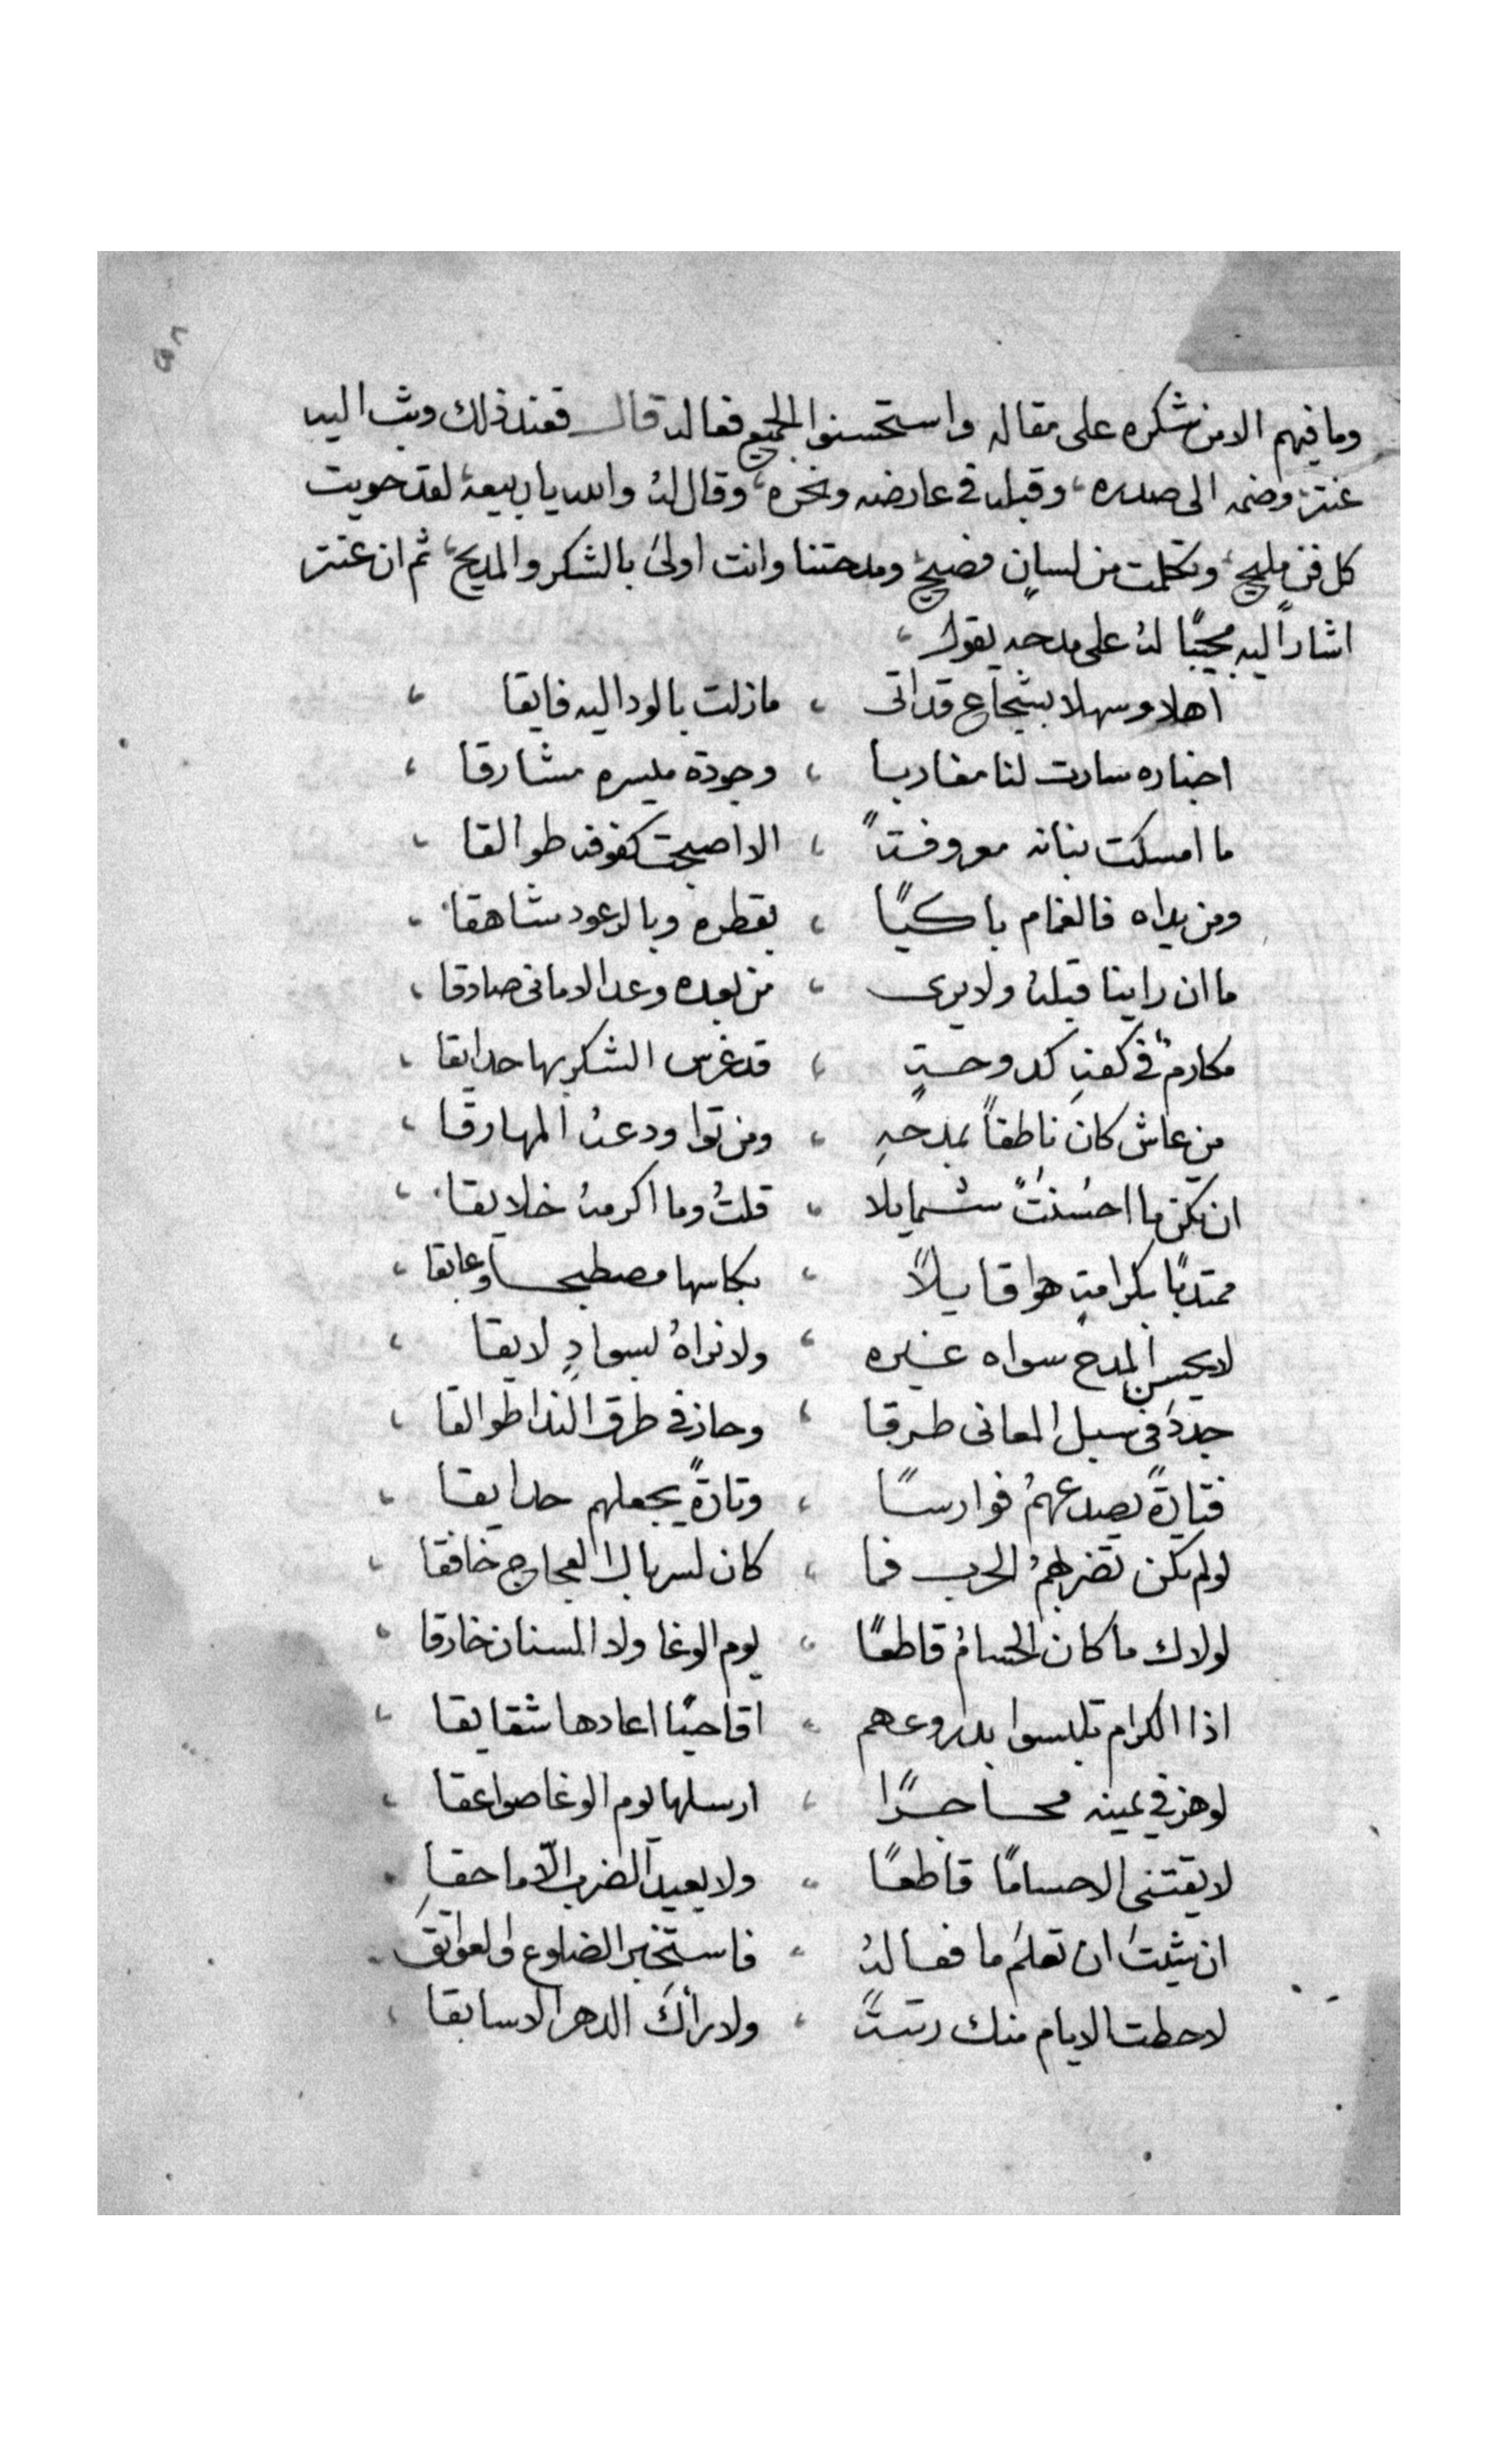 وما فيهم الا من شكره على مقاله واستحسنوا الجميع فعاله قال فعند ذلك وثب اليه
عنتر وضمه الى صدره، وقبله في عارضه ونحره، وقال له والله يا ربيعة، لقد حويت
كل فن مليح، وتكلمت من لسان فصيح، ومدحتنا وانت اولى بالشكر والمديح، ثم ان عنتر
اشار اليه مجيبًا له على مدحه يقول،
اهلا وسهلا بشجاع قد اتى ، مازلت بالود اليه فايقا ،
اخباره سارت لنا مغاربا ، وجوده مسيره مشارقا ،
ما امسكت بنانه معروفةً ، الا اصبحت كفوفه طوالقا ،
ومن يداه فالغمام باكيًا ، بقطره وبالرعود شاهقا ،
ما ان راينا قبله ولا يرى ، من بعده وعد الاماني صادقا ،
مكارم في كفه كدوحةٍ ، قد غرس الشكر بها حدايقا ،
من عاش كان ناطقاً بمدحهِ ، ومن توا ودعه المهارقا ،
ان يكن ما احسنتً شمايلا ، قلتُ وما اكرمه خلايقا ،
بكرامةٍ هوا قايلاً ، بكاسها مصطبحا وعابقا ،
لا يحسن المدح سواه غيره ، ولا نراهُ لسوادٍ لايقا ،
جددَ في سبل المعاني طرقا ، وحاز في طرق الندا طوالقا ،
فتارةً يصدعهمُ فوارسًا ، وتارةً يجعلهم حدايقا ،
لولم تكن تضرابهمُ الحرب فما ، كان لسربال العجاج خافقا ،
لولاك ما كان الحسامُ قاطعًا ، يوم الوغا ولا السنان خارقا ،
اذا الكرام تلبسوا بدروعهم ، اقاحيًا اعادها شقايقا ،
لوهز في يمينه محاجرًا ، ارسلها يوم الوغا صواعقا ،
لا يقتني الا حسامًا قاطعًا ، ولا يعيد الضرب الّا ماحقا
ان شئت ان تعلم ما فعاله ، فاستخبر الضلوع والعواتق
لا حطت الايام منك رتبةً ، ولا رأكَ الدهر الا سابقا ،